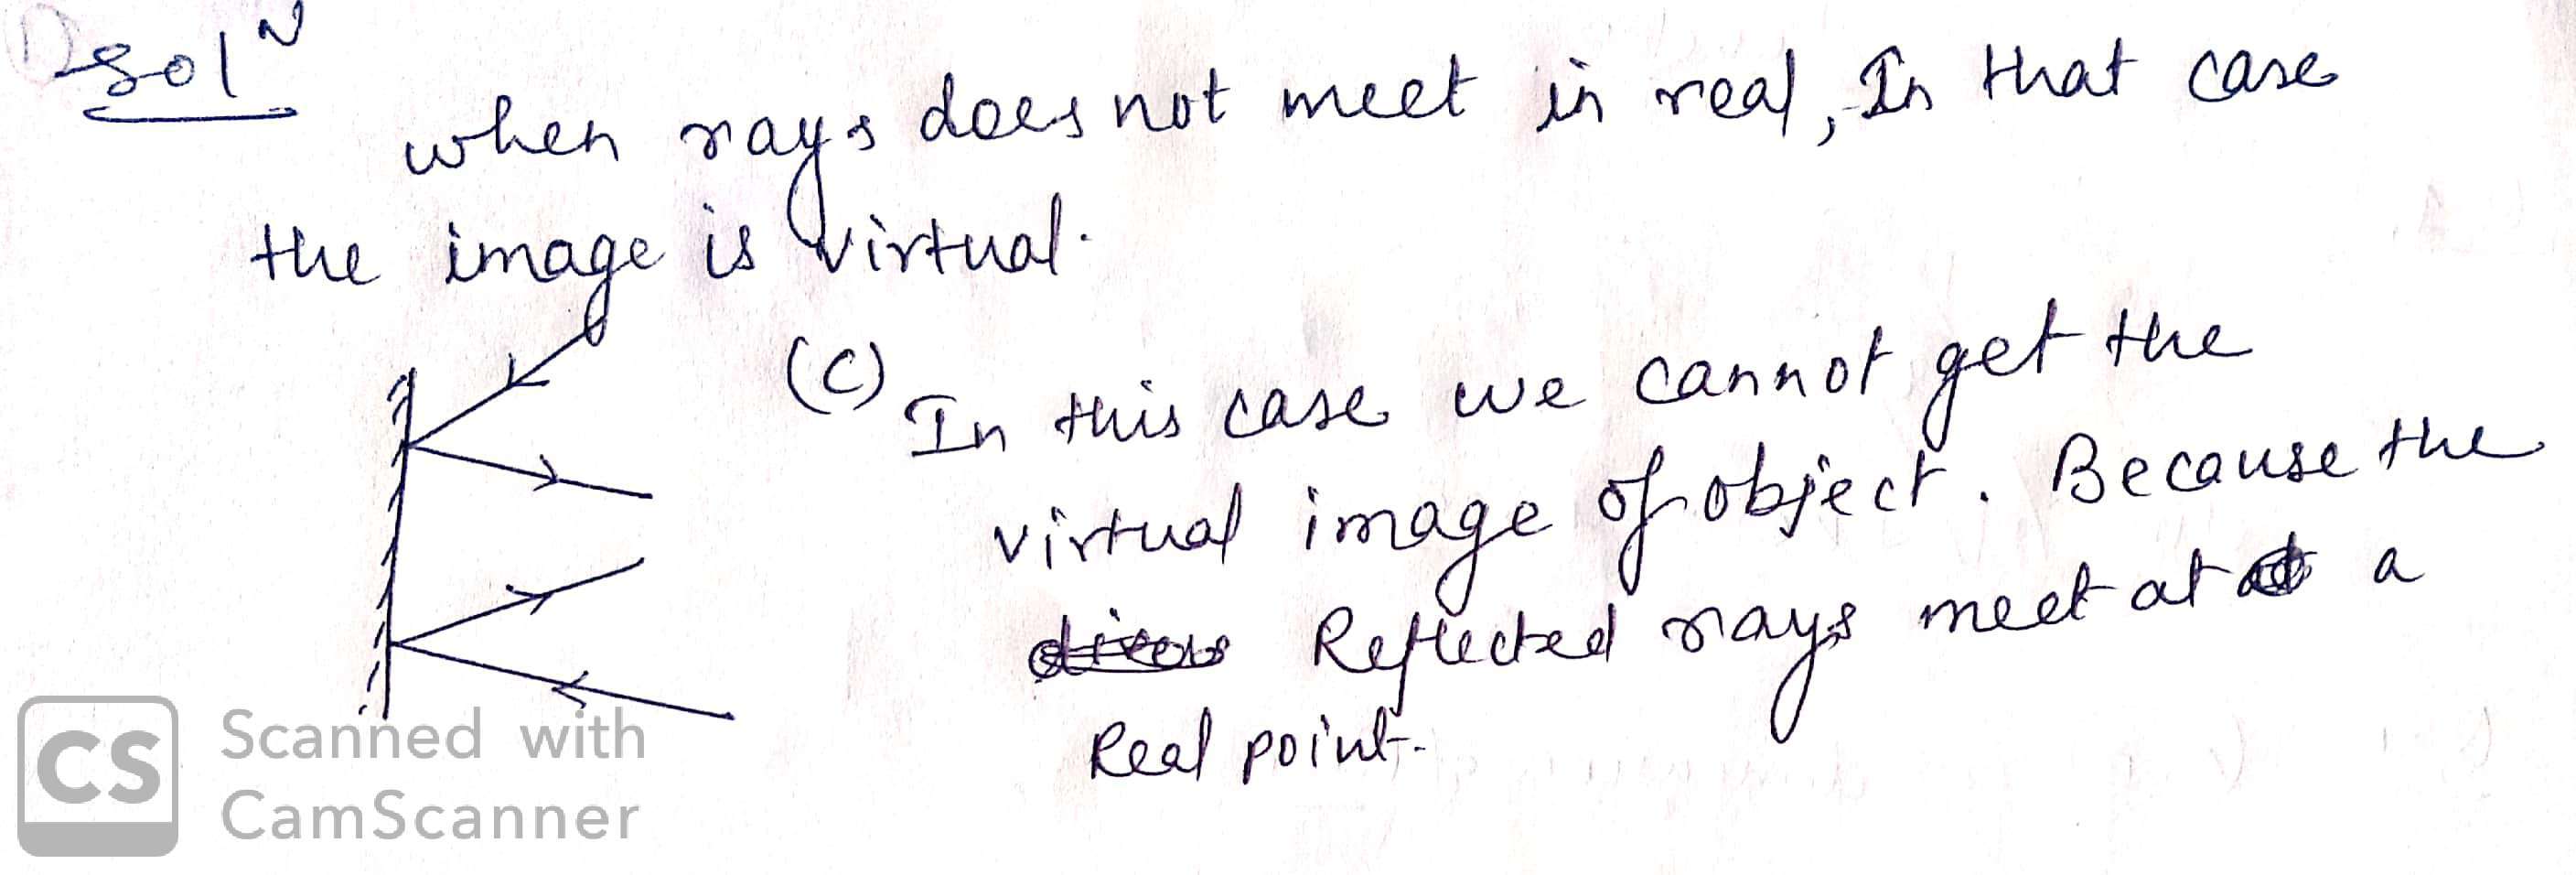 Solⁿ
when rays does not meet in real, In that case
the image is virtual.
(C) In this case we cannot get the
virtual image of object. Because the
Reflected rays meet at a
Real point.
CS Scanned with
CamScanner